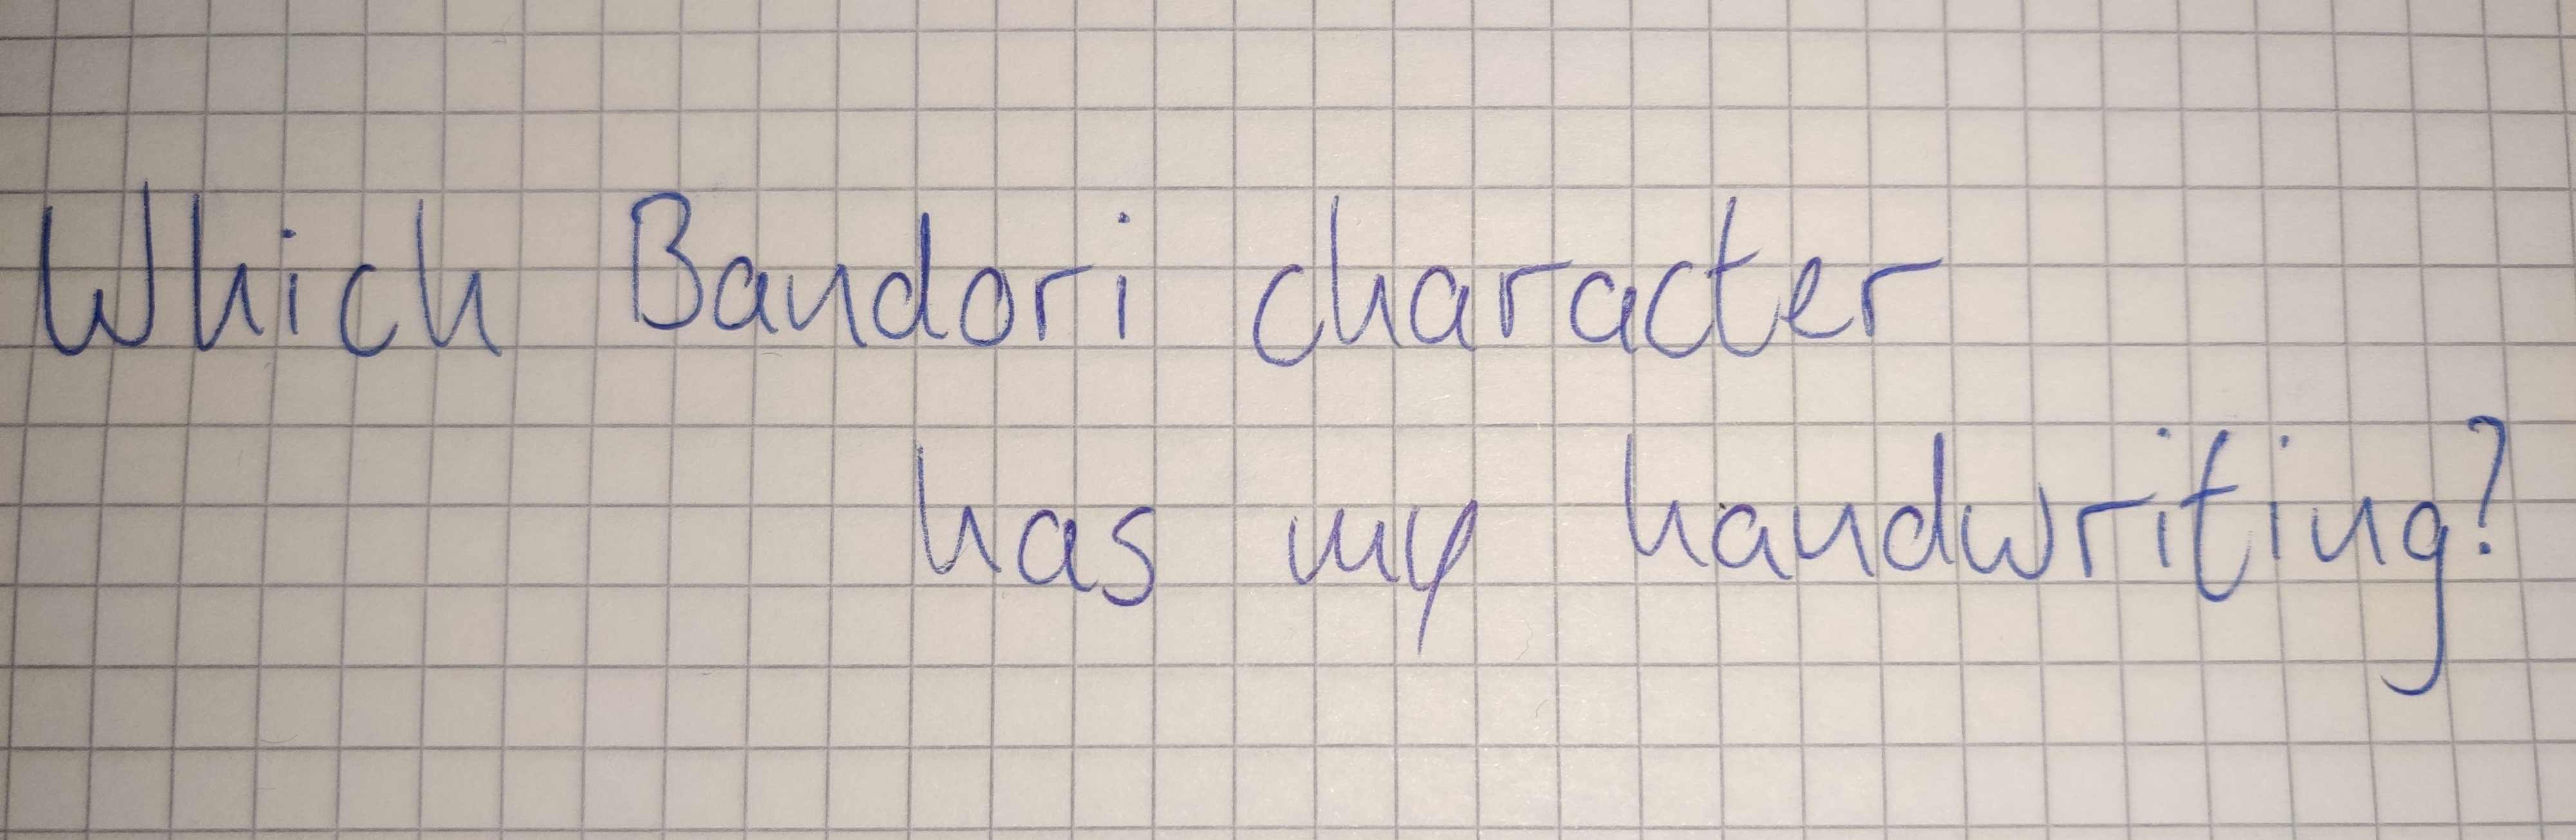 Which Bandori character
has my handwriting?